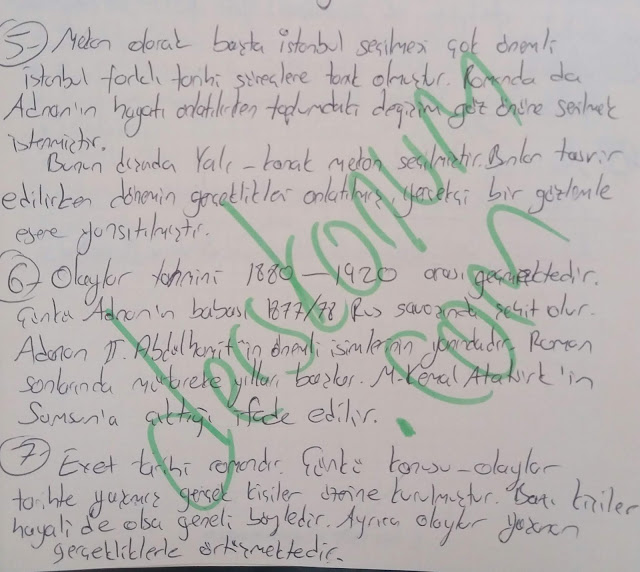 5- Mekan olarak başta istanbul seçilmesi çok önemli
istanbul farklı tarihi süreçlere tanık olmuştur. Romanda da
Adnan'ın hayatı anlatılırken toplumdaki değişim göz önüne serilmek
istenmiştir.
Bunun dışında Yalı-konak mekan seçilmiştir. Bunlar tasvir
edilirken dönemin gerçeklikleri anlatılmış, gerçekçi bir gözlemle
esere yansıtılmıştır.
6- Olaylar tahmini 1880-1920 arası geçmektedir.
Çünkü Adnan'ın babası 1877/78 Rus savaşında şehit olur.
Adnan II. Abdulhamit'in önemli isimlerinin yanındadır. Roman
sonlarında mütareke yılları başlar. M.Kemal Atatürk'in
Samsun'a çıktığı ifade edilir.
7- Evet tarihi romandır. Çünkü konusu-olaylar
tarihte yaşamış gerçek kişiler üzerine kurulmuştur. Bazı kişiler
hayali de olsa geneli böyledir. Ayrıca olaylar yaşanan
gerçekliklerle örtüşmektedir.
derskonum
.com